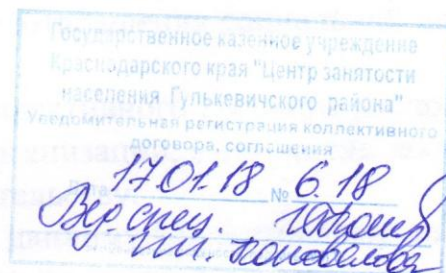 Государственное казенное учреждение
Краснодарского края "Центр занятости
населения Гулькевичского района"
Уведомительная регистрация коллективного
договора, соглашения
Дата 17.01.18 № 6.18
Вед. спец.
Коновалова